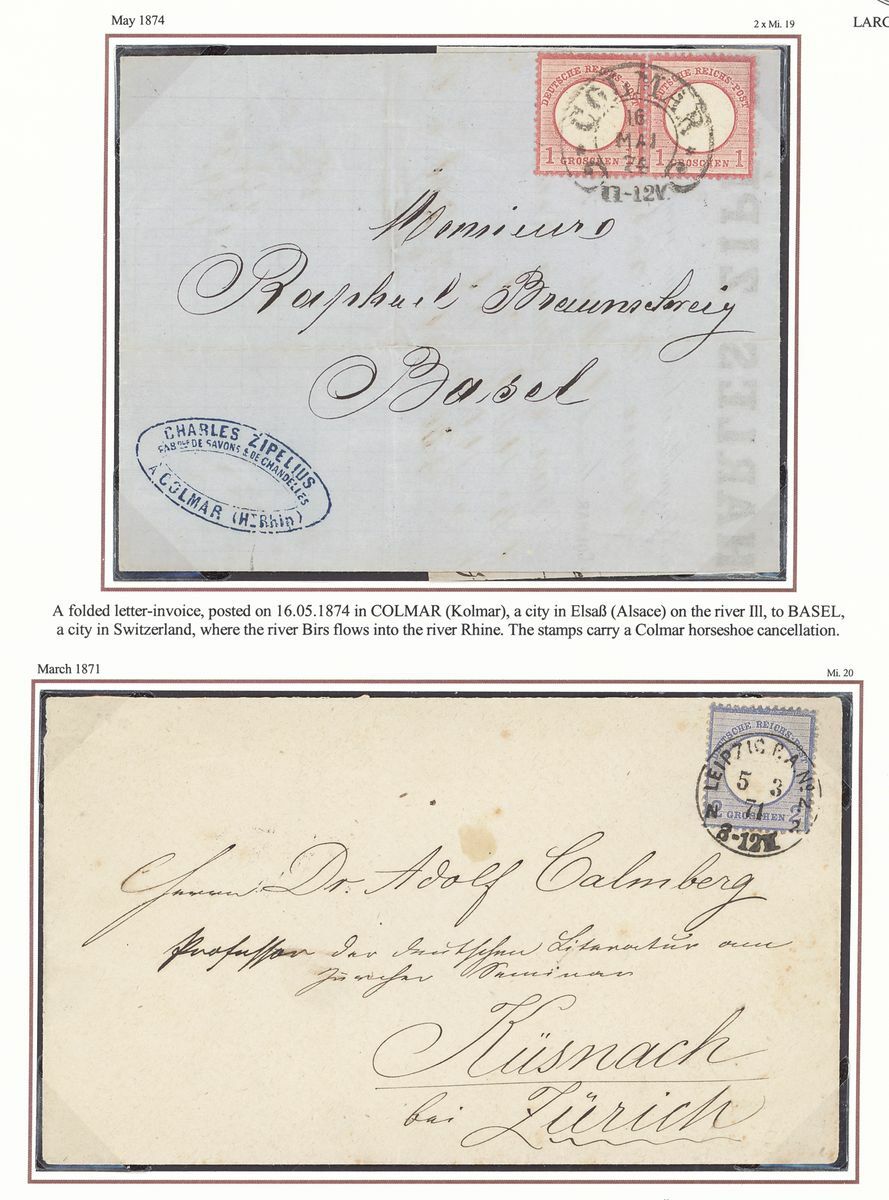 May 1874
2 x Mi. 19
LARG
DEUTSCHE REICHS-POST
DEUTSCHE REICHS-POST
1 GROSCHEN 1
1 GROSCHEN 1
COLMER
16
MAI
74
11-12V.
Monsieur
Raphael Braunschweig
Basel
CHARLES ZIPELIUS
FABque DE SAVONS & DE CHANDELLES
A COLMAR (Ht Rhin)
A folded letter-invoice, posted on 16.05.1874 in COLMAR (Kolmar), a city in Elsaß (Alsace) on the river Ill, to BASEL,
a city in Switzerland, where the river Birs flows into the river Rhine. The stamps carry a Colmar horseshoe cancellation.
March 1871
Mi. 20
DEUTSCHE REICHS-POST
2 GROSCHEN 2
LEIPZIG P. A. No. 2
5 3
71
Herrn Dr. Adolf Calmberg
Professor der deutschen Literatur am
Züricher Seminar
Küsnach
bei Zürich